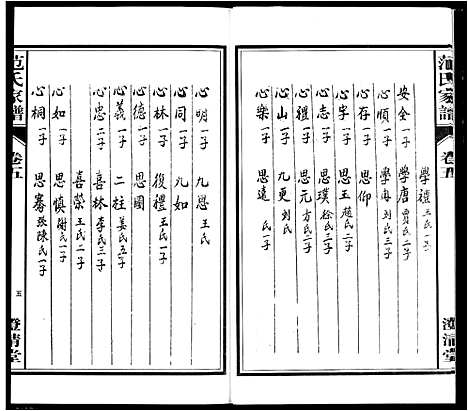 范氏家譜
卷五
澄清堂
學禮 王氏一子
安全 一子 學唐 賈氏二子
心順 一子 學海 刘氏三子
心存 一子 思仰
心宇 一子 思玉 趙氏二子
心志 一子 思璞 徐氏三子
心禮 一子 思元 方氏二子
心山 一子 九更 刘氏
心樂 一子 思遠 氏一子
心明 一子 九思 王氏
心同 一子 九如
心林 一子 後禮 王氏一子
心德 一子 思國
心義 一子 二柱 姜氏五子
心忠 二子 喜林 李氏三子
喜榮 王氏二子
心如 一子 思慎 謝氏一子
心桐 一子 思騫 張陳氏一子
范氏家譜
卷五
五
澄清堂